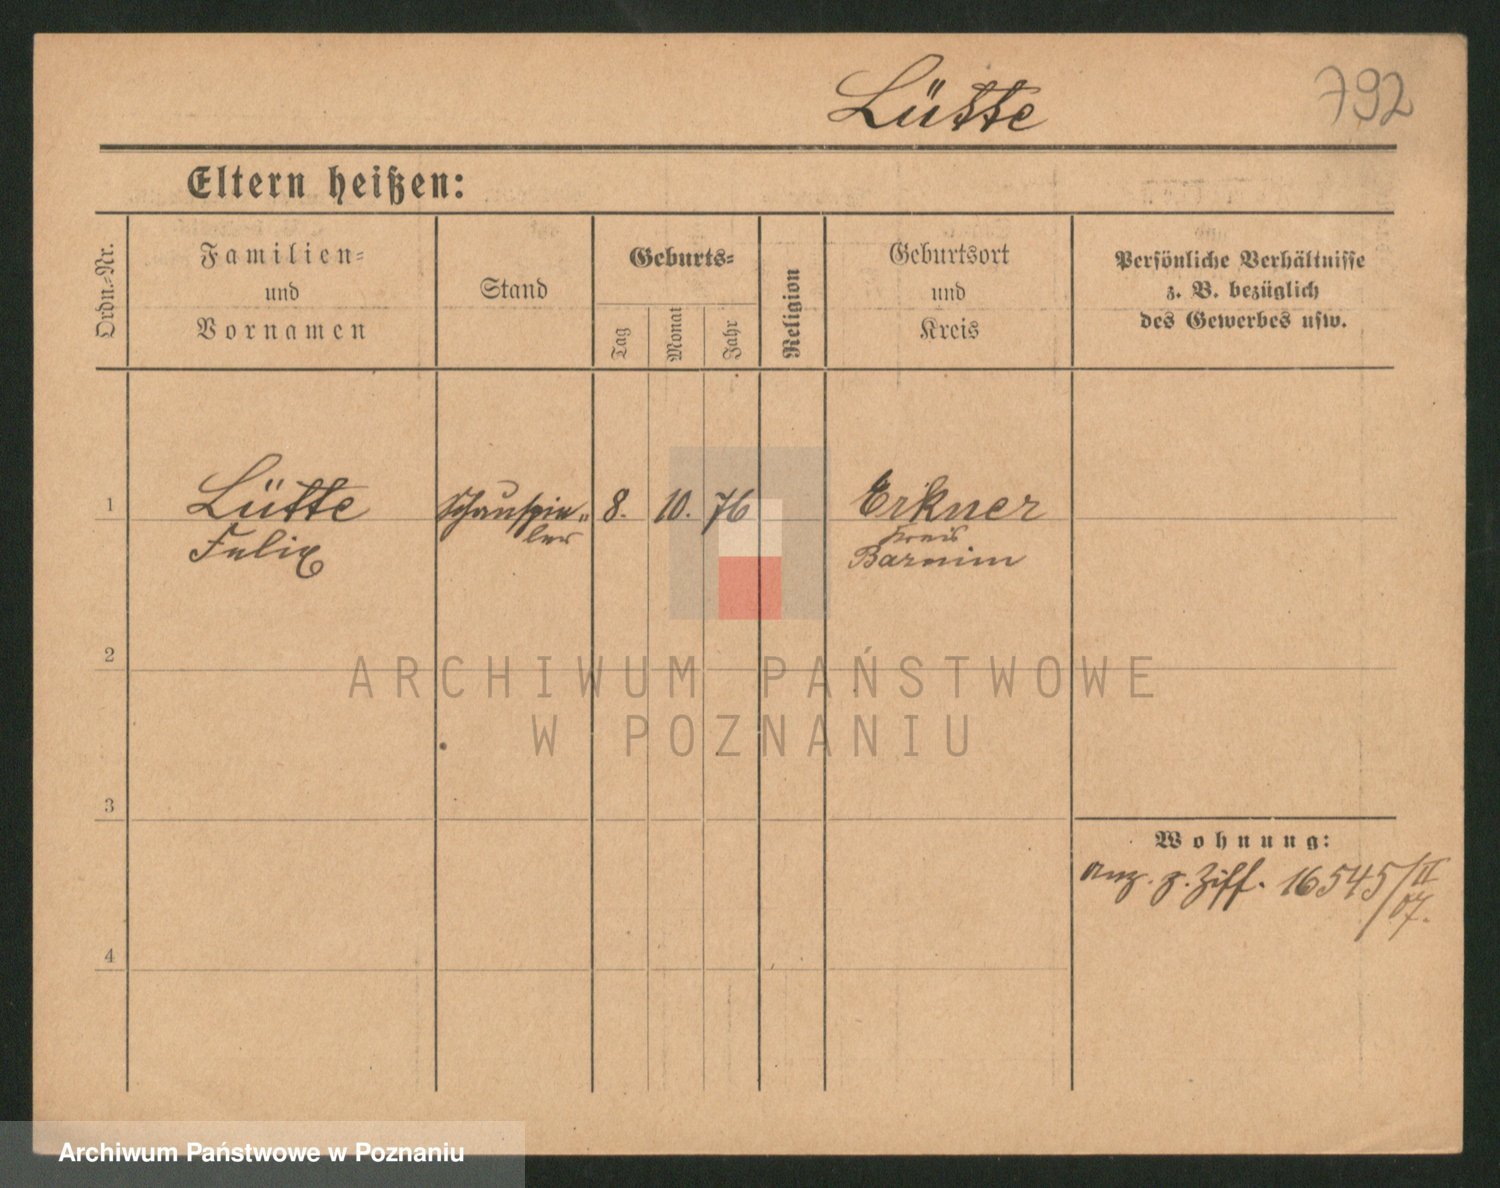 Lütte
792
Eltern heißen:
Ordn.-Nr.
Familien-
und
Vornamen
Stand
Geburts-
Tag
Monat
Jahr
Religion
Geburtsort
und
Kreis
Persönliche Verhältnisse
z. B. bezüglich
des Gewerbes usw.
1
Lütte
Felix
Schauspie-
ler
8.
10.
76
Erkner
Kreis
Barnim
2
ARCHIWUM PAŃSTWOWE
W POZNANIU
3
Wohnung:
Anz. z. Ziff. 16545/II
07.
4
Archiwum Państwowe w Poznaniu